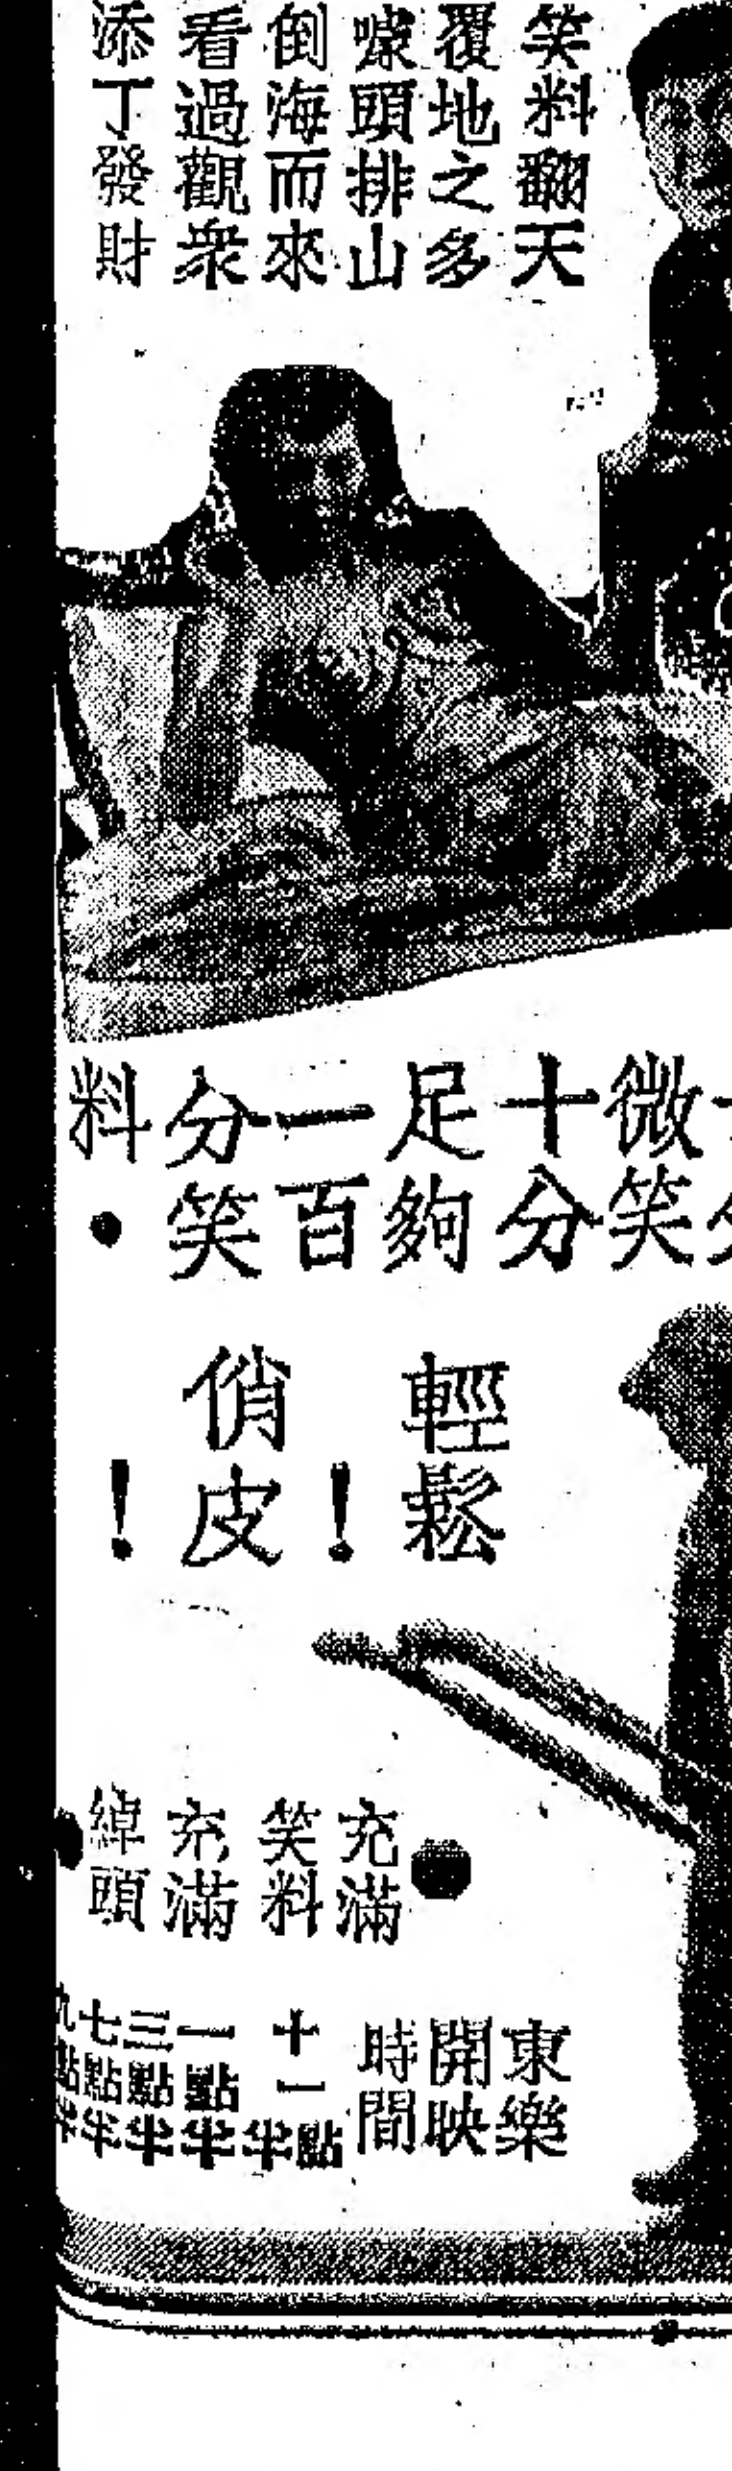 笑料翻天
覆地之多
噱頭排山
倒海而來
看過觀衆
添丁發財
微笑
十分
足夠
一百
分笑
料•
輕鬆
！
俏皮
！
●充滿
笑料
充滿
綽頭●
東樂
開映
時間
十一點半
一點半
三點半
七點半
九點半